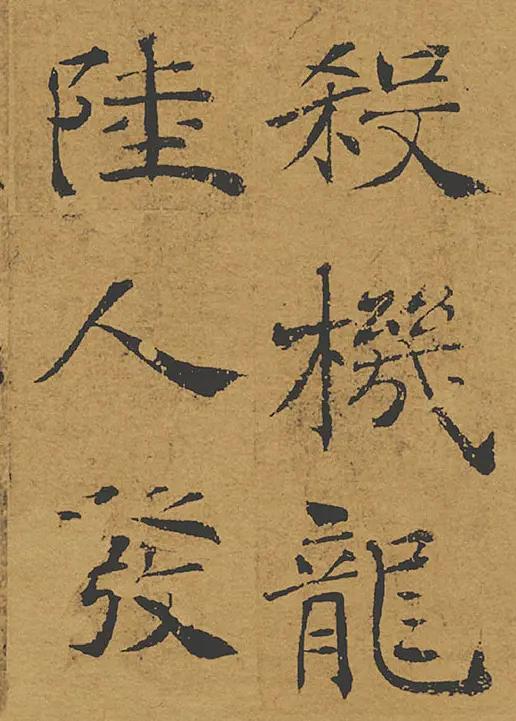 殺機龍
陸人發